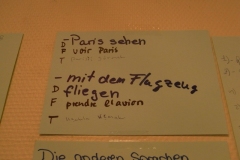 - Paris sehen
D
F voir Paris
T
- mit dem Flugzeug
D fliegen
F prendre l'avion
T
Die anderen Sprachen